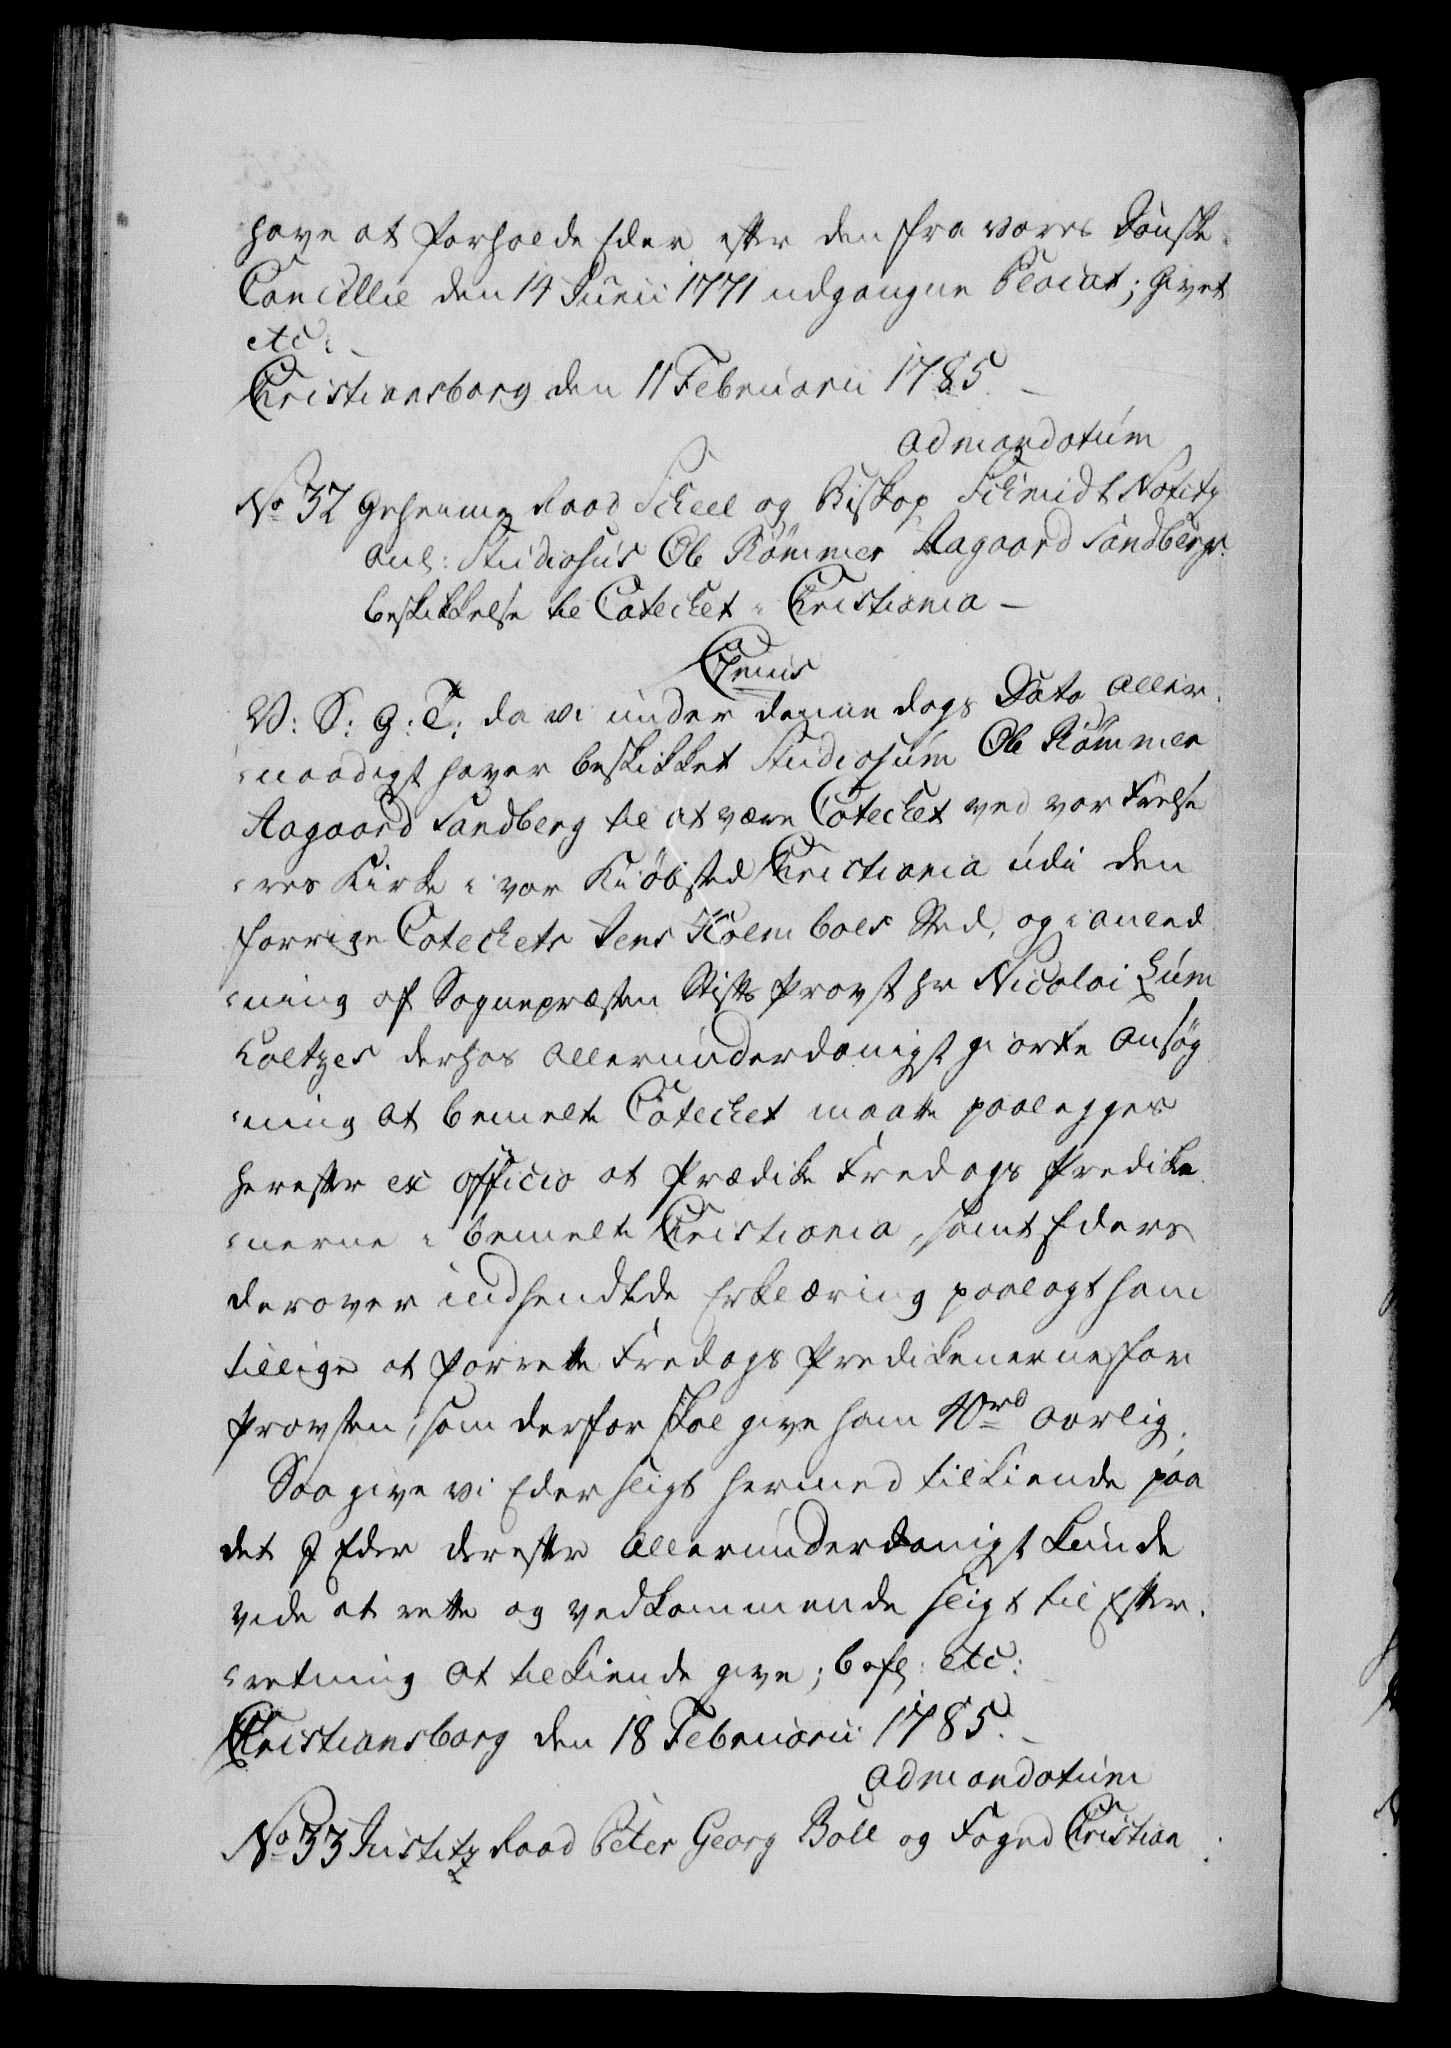 have at forholde Eder efter den fra vores Danske
Cancellie den 14 Junii 1771 udgangne Placat; Givet
etc:
Christiansborg den 11 Februarii 1785.
ad mandatum
No 32 Geheime Raad Scheel og Biskop Schmidt Notitz
anl: Studiosus Ole Rømmer Aagaard Sandbergs
beskikkelse til Catechet i Christiania —
Chr: 7mus
V: S: G: T: da vi under denne dags Dato aller
naadigst haver beskikket Studiosum Ole Rømmer
Aagaard Sandberg til at være Catechet ved vor Frelse
res Kirke i vor Kiøbsted Christiania udi den
forrige Catechets Jens Holmboes Sted, og i anled
ning af Sognepræsten Stifts Provst Hr Nicolai Lum
holtzes derhos allerunderdanigst giorte Ansøg
ning at bemelte Catechet maatte paalegges
herefter ex officio at Prædike Fredags Predike
nerne i bemelte Christiania, samt Eders
derover indsendte Erklæring paalagt ham
tillige at forrette Fredags Predikenerne for
Provsten, som derfor skal give ham 40 rd aarlig.
Saa give vi Eder sligt hermed tilkiende paa
det I Eder derefter allerunderdanigst kunde
vide at rette og vedkommende sligt til Efter
retning at tilkiende give; befl: etc:
Christiansborg den 18 Februarii 1785.
ad mandatum
No 33 Justitz Raad Peter Georg Böll og Foged Christian